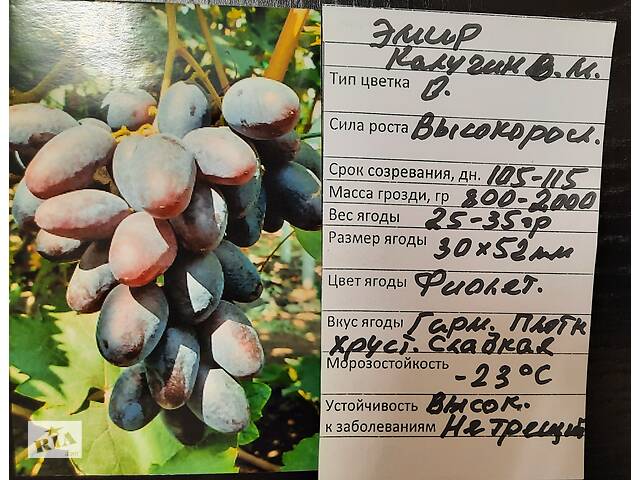 Эмир
Калугин В.М.
Тип цветка О.
Сила роста Высокоросл.
Срок созревания, дн. 105-115
Масса грозди, гр 800-2000
Вес ягоды 25-35гр
Размер ягоды 30х52мм
Цвет ягоды Фиолет.
Вкус ягоды Гарм. Плотн
хруст. Сладкая
Морозостойкость -23°С
Устойчивость Высок.
к заболеваниям Не трещит
RIA